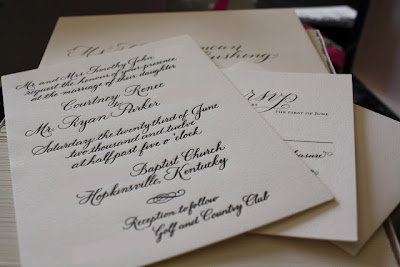 Mr and Mrs Timothy John
request the honour of your presence
at the marriage of their daughter
Courtney Renee
to
Mr. Ryan Parker
Saturday, the twenty third of June
two thousand and twelve
at half past five o'clock
Baptist Church
Hopkinsville, Kentucky
Reception to follow
Golf and Country Club
rsvp
the first of June
pleasure